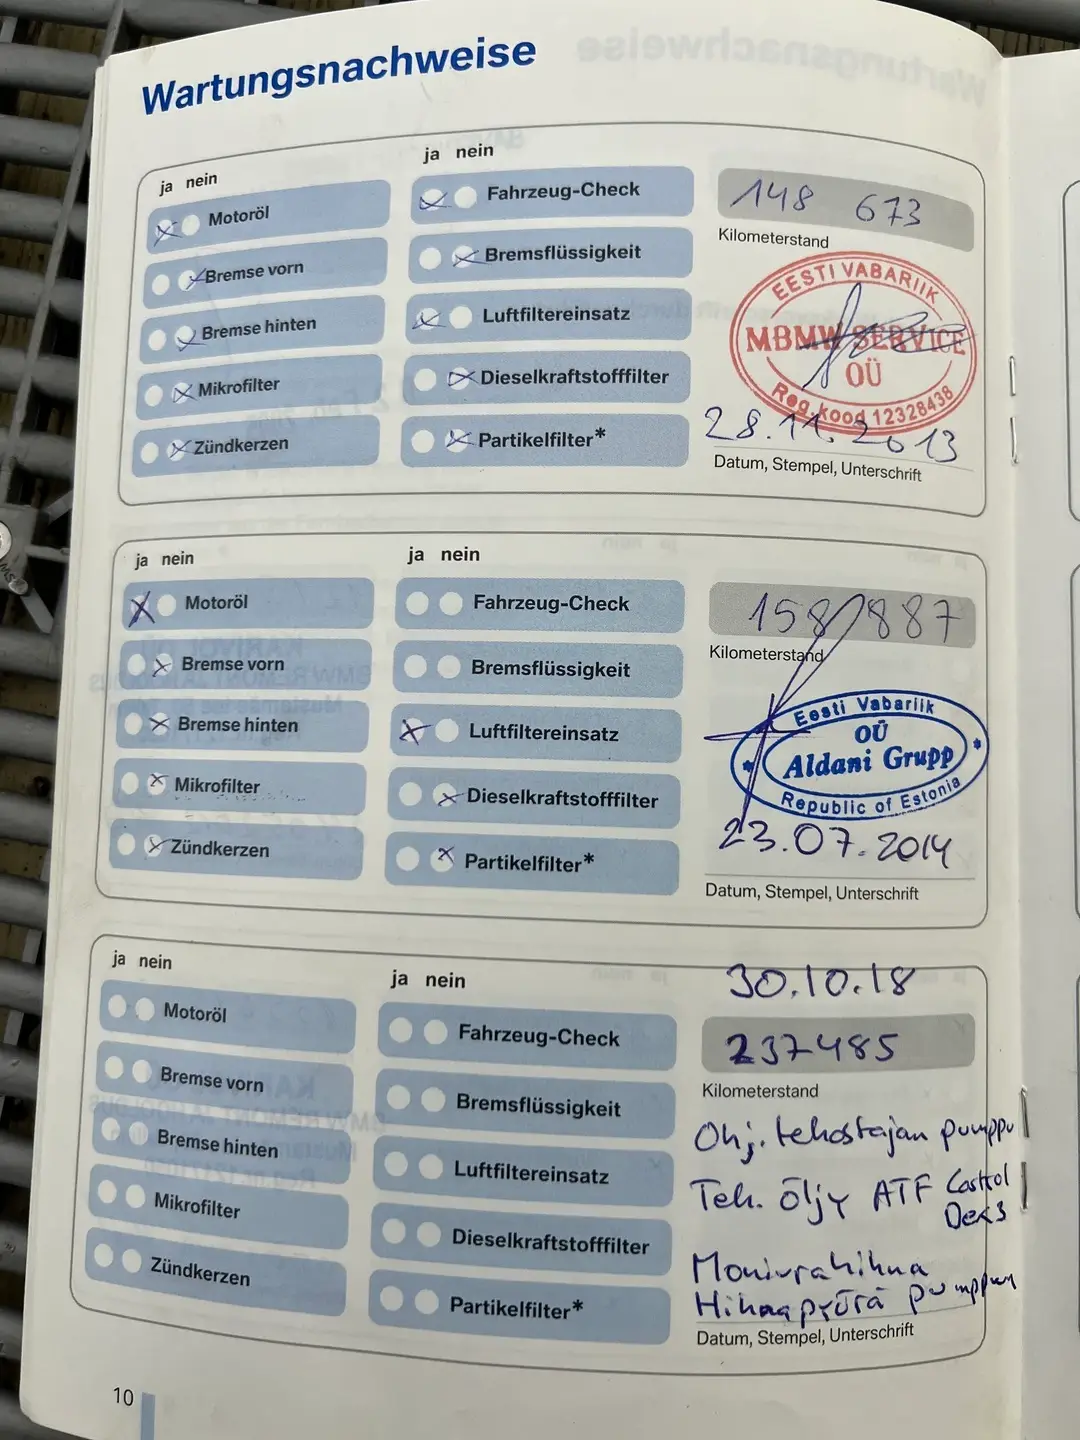 Wartungsnachweise
ja nein
Motoröl
Bremse vorn
Bremse hinten
Mikrofilter
Zündkerzen
ja nein
Fahrzeug-Check
Bremsflüssigkeit
Luftfiltereinsatz
Dieselkraftstofffilter
Partikelfilter*
148 673
Kilometerstand
EESTI VABARIIK
MBMW SERVICE
OÜ
Reg.kood 12328438
28.11.2013
Datum, Stempel, Unterschrift
ja nein
Motoröl
Bremse vorn
Bremse hinten
Mikrofilter
Zündkerzen
ja nein
Fahrzeug-Check
Bremsflüssigkeit
Luftfiltereinsatz
Dieselkraftstofffilter
Partikelfilter*
158 887
Kilometerstand
Eesti Vabariik
OÜ
Aldani Grupp
Republic of Estonia
23.07.2014
Datum, Stempel, Unterschrift
ja nein
Motoröl
Bremse vorn
Bremse hinten
Mikrofilter
Zündkerzen
ja nein
Fahrzeug-Check
Bremsflüssigkeit
Luftfiltereinsatz
Dieselkraftstofffilter
Partikelfilter*
30.10.18
237485
Kilometerstand
Ohj. tehostajan pumppu
Teh. Öljy ATF Castrol
Dex3
Moniurahihna
Hihnapyörä pumppun
Datum, Stempel, Unterschrift
10